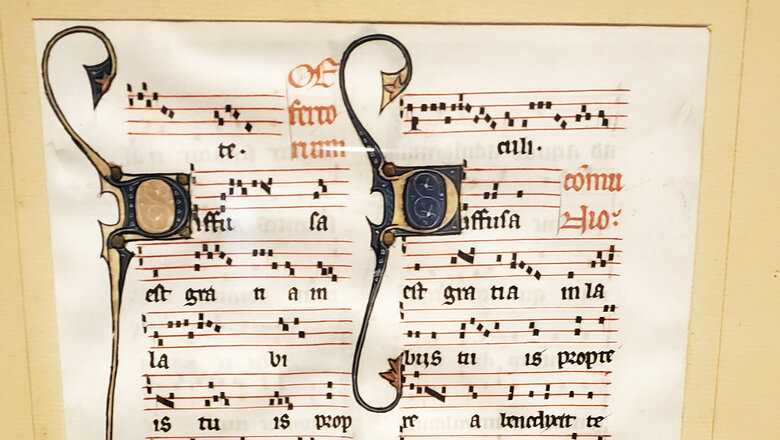 te. Of
ferto
rium
Diffu sa
est gra ti a in
la bi
is tu is prop
culi.
Diffusa cōmu
nio.
est gra tia in la
bijs tu is propte
re a benedixit te